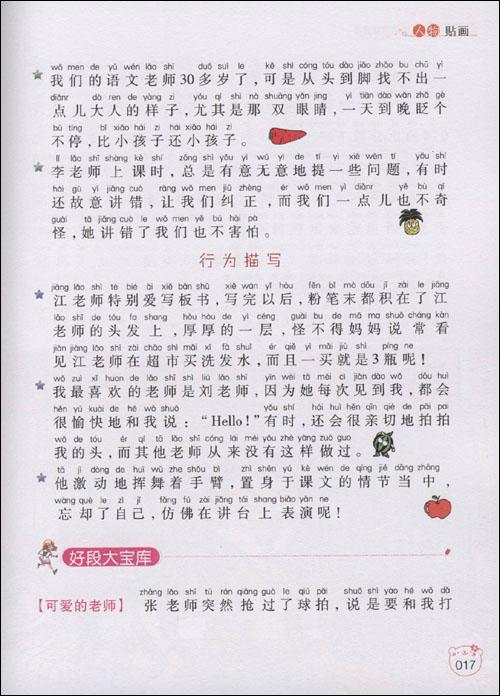 人物 贴画
wǒ men de yǔ wén lǎo shī duō suì le kě shì cóng tóu dào jiǎo zhǎo bu chū yì
★ 我们的语文老师30多岁了,可是从头到脚找不出一
diǎnr dà ren de yàng zi yóu qí shì nà shuāng yǎn jing yì tiān dào wǎn zhǎ gè
点儿大人的样子,尤其是那 双 眼睛,一天到晚眨个
bù tíng bǐ xiǎo hái zi hái xiǎo hái zi
不停,比小孩子还小孩子。
lǐ lǎo shī shàng kè shí zǒng shì yǒu yì wú yì de tí yì xiē wèn tí yǒu shí
★ 李老师上课时,总是有意无意地提一些问题,有时
hái gù yì jiǎng cuò ràng wǒ men jiū zhèng ér wǒ men yì diǎnr yě bù qí
还故意讲错,让我们纠正,而我们一点儿也不奇
guài tā jiǎng cuò le wǒ men yě bú hài pà
怪,她讲错了我们也不害怕。
行为描写
jiāng lǎo shī tè bié ài xiě bǎn shū xiě wán yǐ hòu fěn bǐ mò dōu jī zài le jiāng
★ 江老师特别爱写板书,写完以后,粉笔末都积在了江
lǎo shī de tóu fa shang hòu hòu de yì céng guài bu de mā ma shuō cháng kàn
老师的头发上,厚厚的一层,怪不得妈妈说常看
jiàn jiāng lǎo shī zài chāo shì mǎi xǐ fà shuǐ ér qiě yì mǎi jiù shì píng ne
见江老师在超市买洗发水,而且一买就是3瓶呢!
wǒ zuì xǐ huan de lǎo shī shì liú lǎo shī yīn wèi tā měi cì jiàn dào wǒ dōu huì
★ 我最喜欢的老师是刘老师,因为她每次见到我,都会
hěn yú kuài de hé wǒ shuō yǒu shí hái huì hěn qīn qiè de pāi pai
很愉快地和我说:“Hello!”有时,还会很亲切地拍拍
wǒ de tóu ér qí tā lǎo shī cóng lái méi yǒu zhè yàng zuò guo
我的头,而其他老师从来没有这样做过。
tā jī dòng de huī wǔ zhe shǒu bì zhì shēn yú kè wén de qíng jié dāng zhōng
★ 他激动地挥舞着手臂,置身于课文的情节当中,
wàng què le zì jǐ fǎng fú zài jiǎng tái shang biǎo yǎn ne
忘却了自己,仿佛在讲台上表演呢!
好段大宝库
zhāng lǎo shī tū rán qiǎng guò le qiú pāi shuō shì yào hé wǒ dǎ
【可爱的老师】 张老师突然抢过了球拍,说是要和我打
017